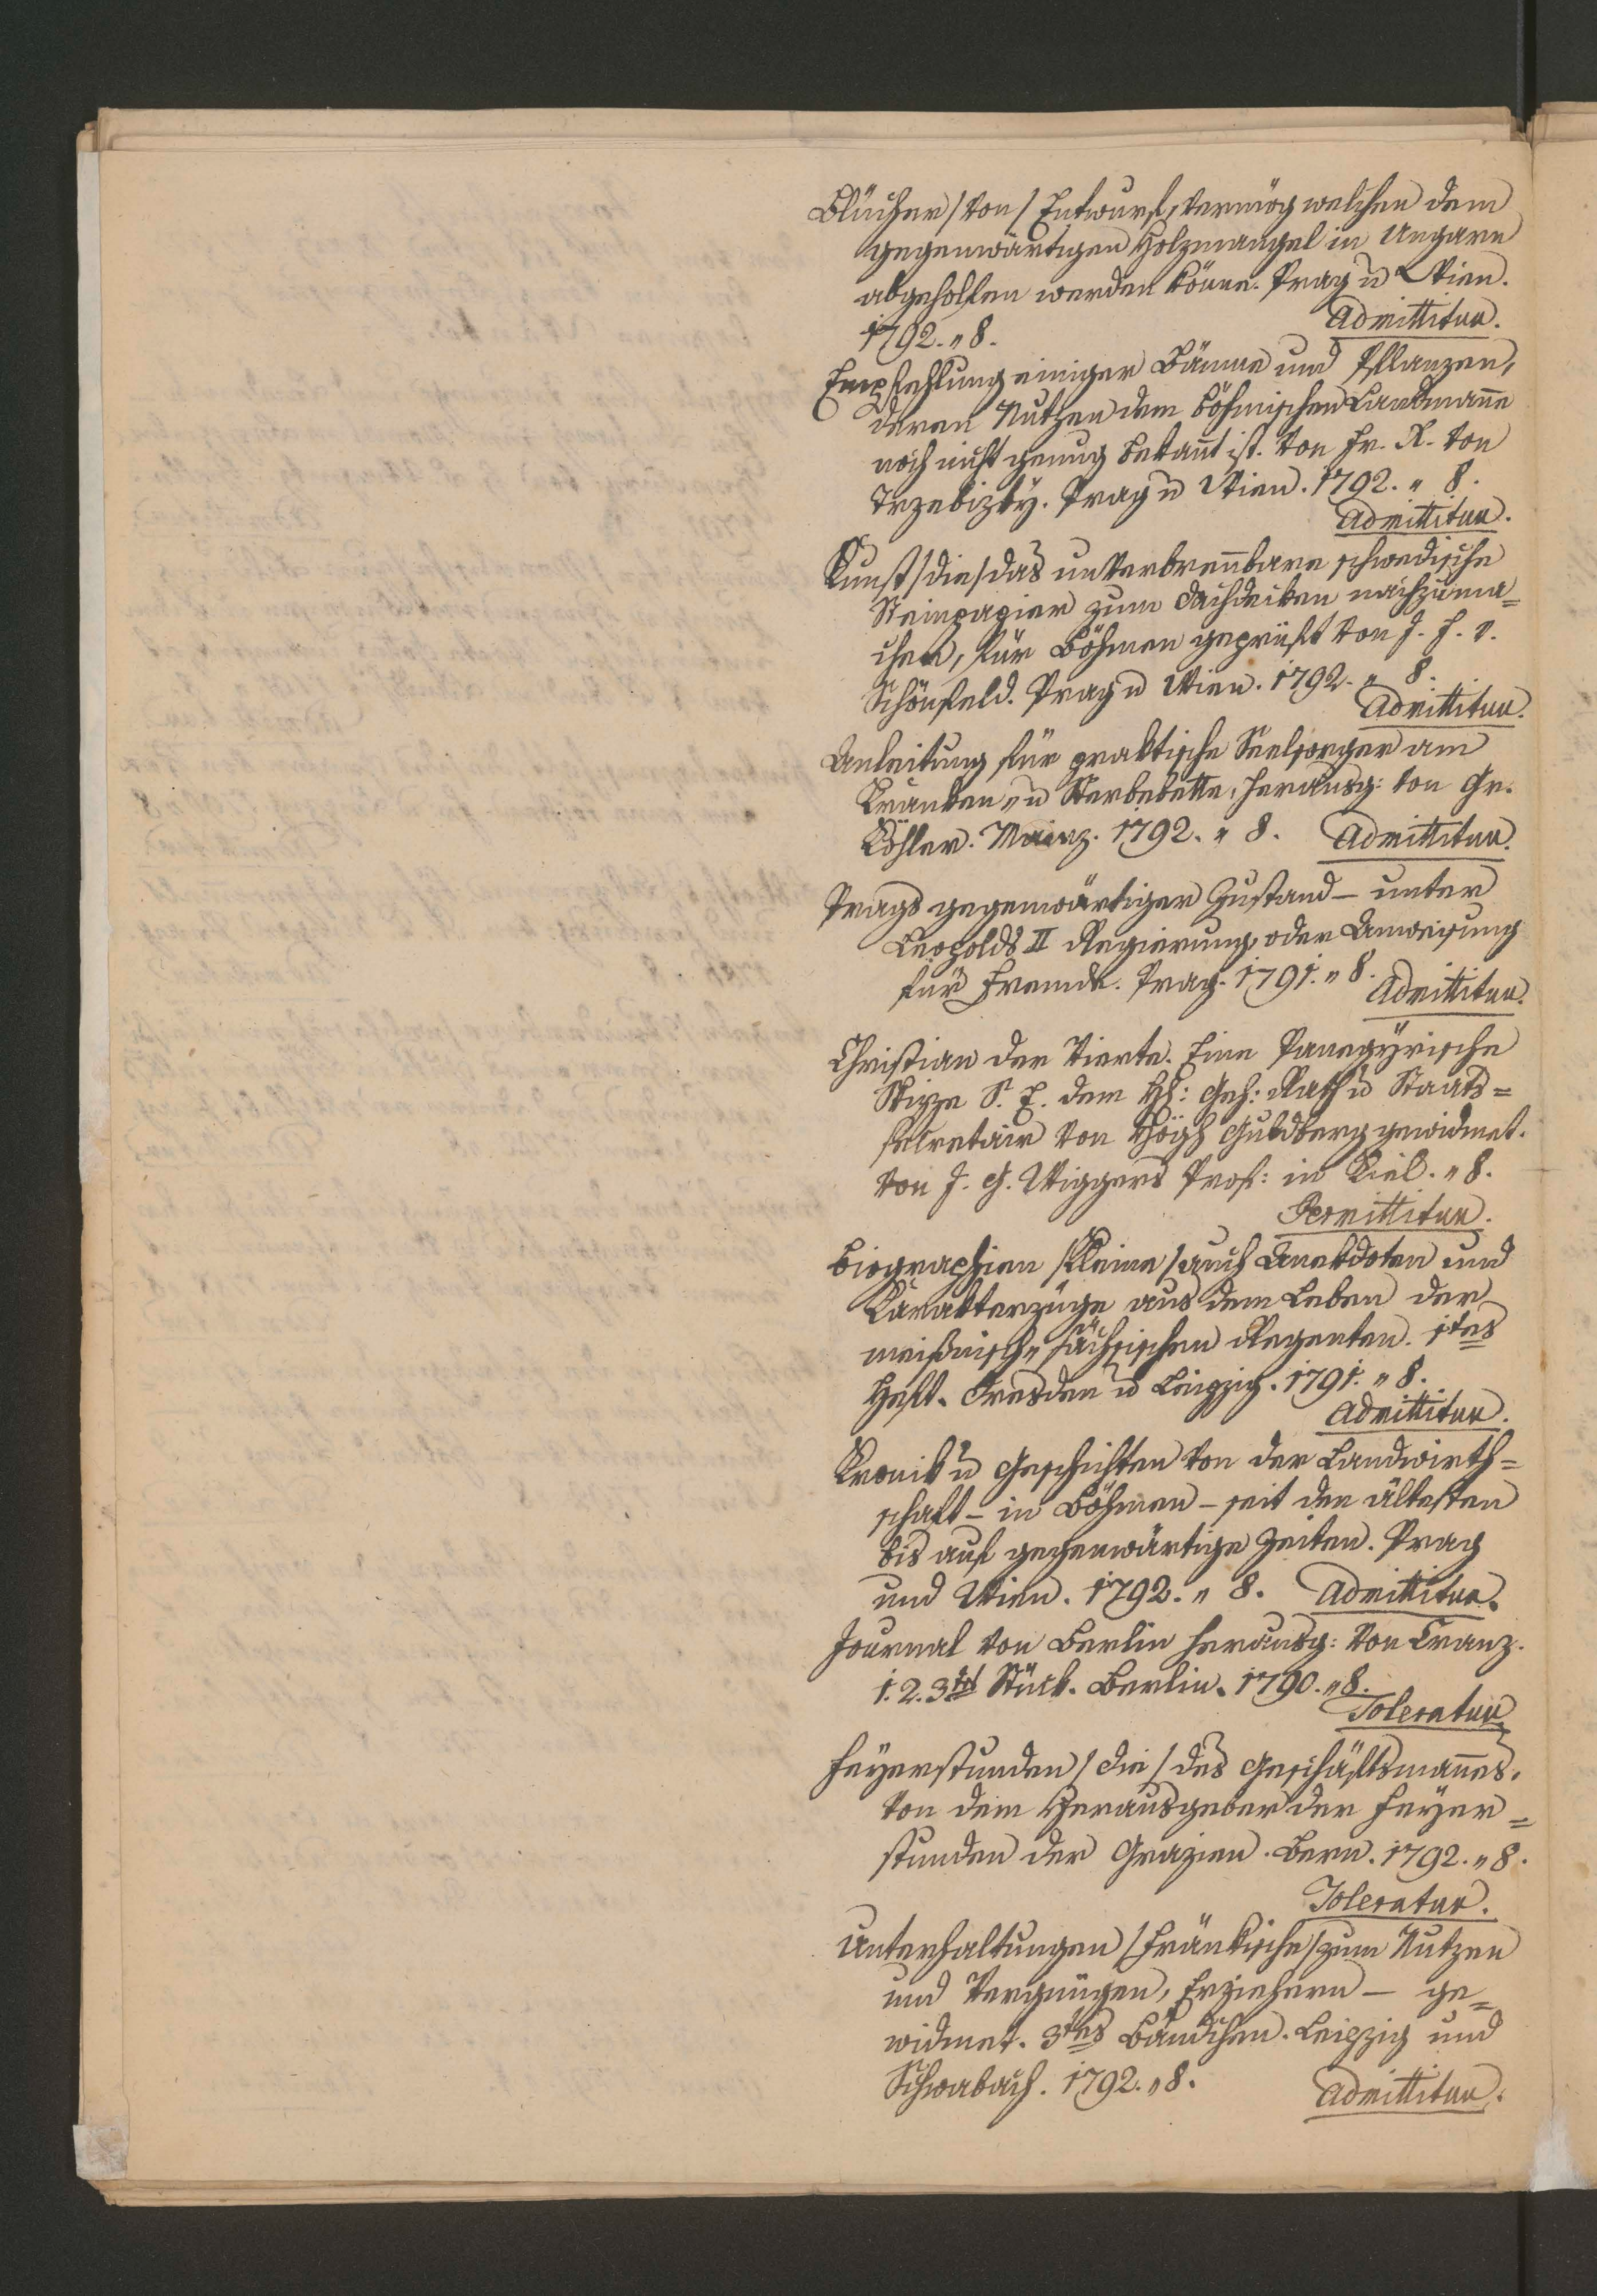 Blücher /von/ Entwurf, vermög welchen dem
gegenwärtigen Holzmangel in Ungarn
abgeholfen werden könne. Prag u Wien.
1792. „ 8. Admittitur.
Empfehlung einiger Bäume und Pflanzen,
deren Nutzen dem böhmischen Landmanne
noch nicht genug bekannt ist. Von Fr. R. von
Trzebizky. Prag u Wien. 1792. „ 8.
Admittitur.
Kunst /die/ das unverbrennbare schwedische
Steinpapier zum Dachdecken nachzuma=
chen, für Böhmen geprüft von J. F. v.
Schönfeld. Prag u Wien. 1792. „ 8.
Admittitur.
Anleitung für praktische Seelsorger am
Kranken„ u Sterbebette, herausg: von Gr.
Köhler. Mainz. 1792. „ 8. Admittitur.
Prags gegenwärtiger Zustand – unter
Leopolds II Regierung, oder Anweisung
für Fremde. Prag. 1791. „ 8. Admittitur.
Christian der Vierte. Eine Panegyrische
Skizze S. E. dem HH: Geh: Rath u Staats=
secretair von Högh Guldberg gewidmet.
von J. G. Wiggers Prof: in Kiel. „ 8.
Permittitur.
Biographien /kleine/ auch Anekdoten und
Karakterzüge aus dem Leben der
meißnisch„ sächsischen Regenten. 1tes
Heft. Dresden u Leipzig. 1791. „ 8.
Admittitur.
Kronik u Geschichten von der Landwirth=
schaft – in Böhmen – seit den ältesten
bis auf gegenwärtige Zeiten. Prag
und Wien. 1792. „ 8. Admittitur.
Journal von Berlin herausg: von Cranz.
1. 2. 3tes Stück. Berlin. 1790. „ 8.
Toleratur
Feyerstunden /die/ des Geschäftsmannes.
von dem Herausgeber der Feyer=
stunden der Grazien. Bern. 1792. „ 8.
Toleratur.
Unterhaltungen /Fränkische/ zum Nutzen
und Vergnügen, Erziehern – ge=
widmet. 3tes Bändchen. Leipzig und
Schwabach. 1792. „ 8. Admittitur.